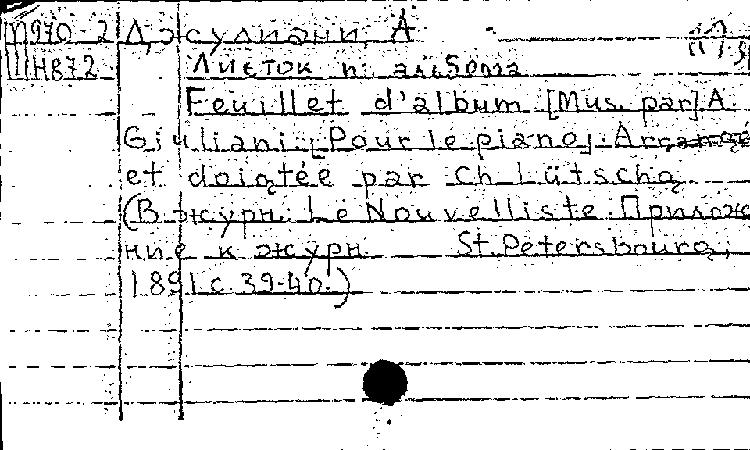 М970-2 Джулиани, А
III Н872 Листок из альбома
Feuillet d'album [Mus. par] A.
Giuliani. [Pour le piano]. Arrangé
et doigtée par Ch Lütschg.
(В журн. Le Nouvelliste. Приложе
ние к журн St. Petersbourg,
1891. с 39-40.)